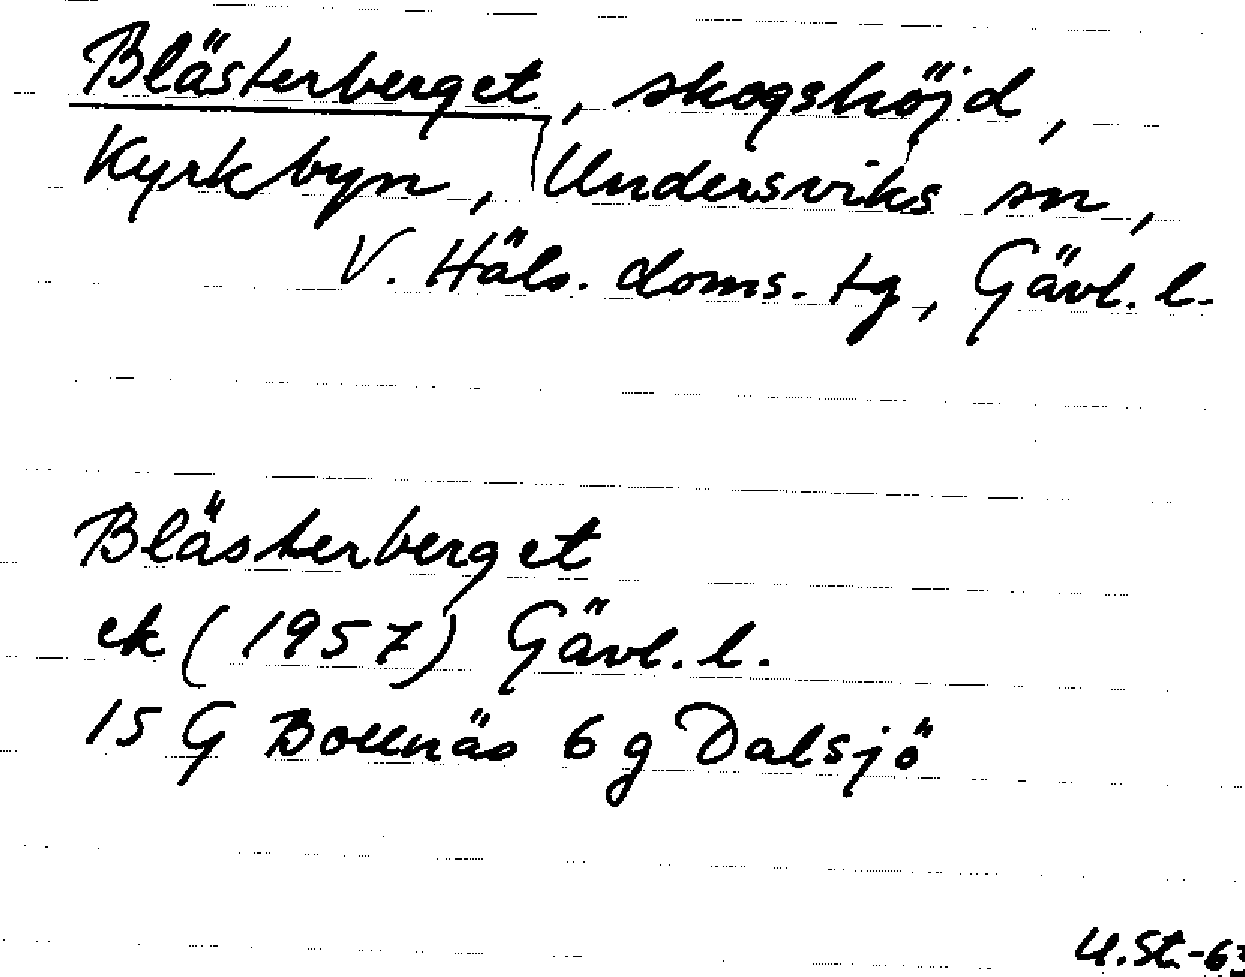 Blästerberget, skogshöjd,
Kyrkbyn, Undersviks sn,
V. Häls. doms. tg, Gävl. l.
Blästerberget
ek (1957) Gävl. l.
15 G Bollnäs 6 g Dalsjö
U.St.-63